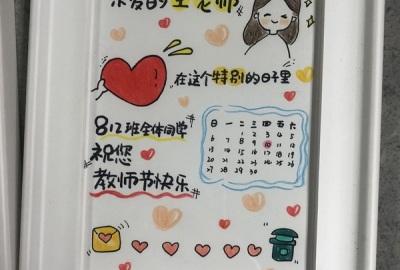 亲爱的王老师
在这个特别的日子里
812班全体同学
祝您
教师节快乐
日 一 二 三 四 五 六
1 2 3 4 5
6 7 8 9 10 11 12
13 14 15 16 17 18 19
20 21 22 23 24 25 26
27 28 29 30